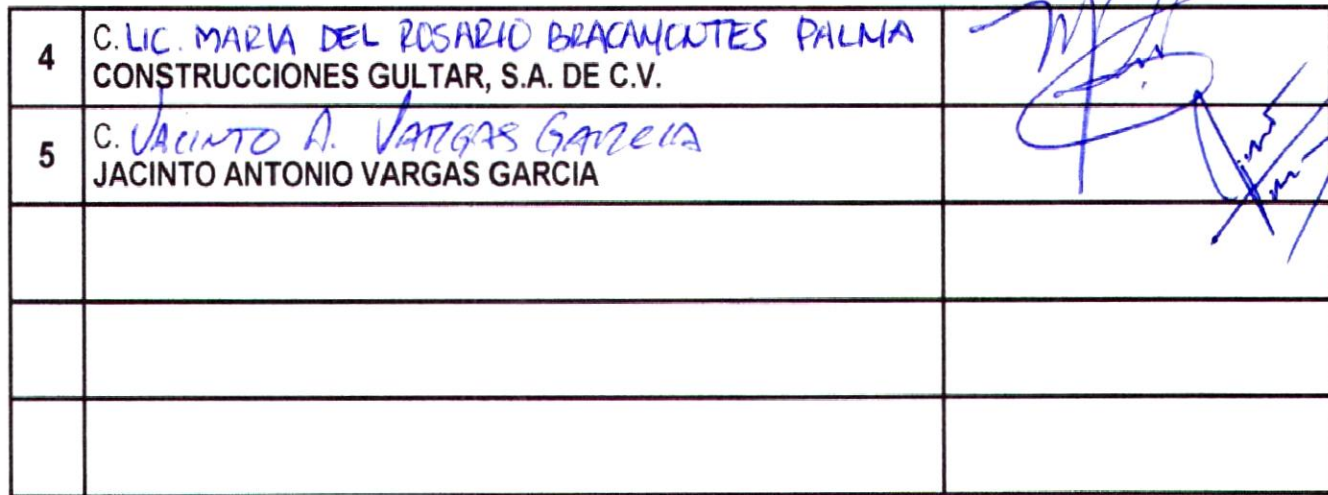 4 C. LIC. MARIA DEL ROSARIO BRACAMONTES PALMA
CONSTRUCCIONES GULTAR, S.A. DE C.V.
5 C. JACINTO A. VARGAS GARCIA
JACINTO ANTONIO VARGAS GARCIA